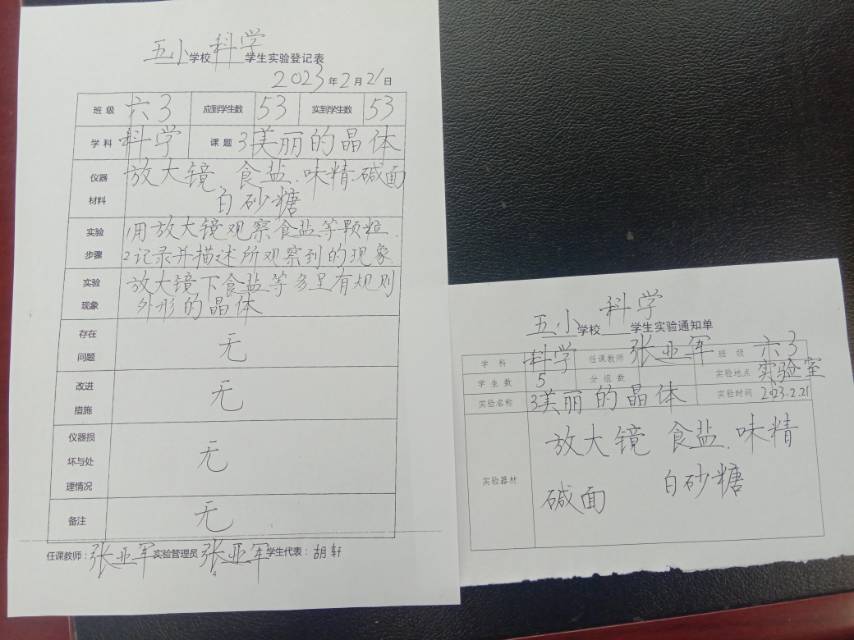 五小学校科学学生实验登记表
2023年2月21日
班级 六3 应到学生数 53 实到学生数 53
学科 科学 课题 3美丽的晶体
仪器材料 放大镜 食盐.味精.碱面
白砂糖
实验步骤 1用放大镜观察食盐等颗粒.
2记录并描述所观察到的现象
实验现象 放大镜下食盐等多呈有规则
外形的晶体
存在问题 无
改进措施 无
仪器损坏与处理情况 无
备注 无
任课教师:张亚军实验管理员张亚军学生代表:胡轩
五小学校科学学生实验通知单
学科 科学 任课教师 张亚军 班级 六3
学生数 5 分组数 实验地点 实验室
实验名称 3美丽的晶体 实验时间 2023.2.21
实验器材 放大镜 食盐.味精
碱面 白砂糖